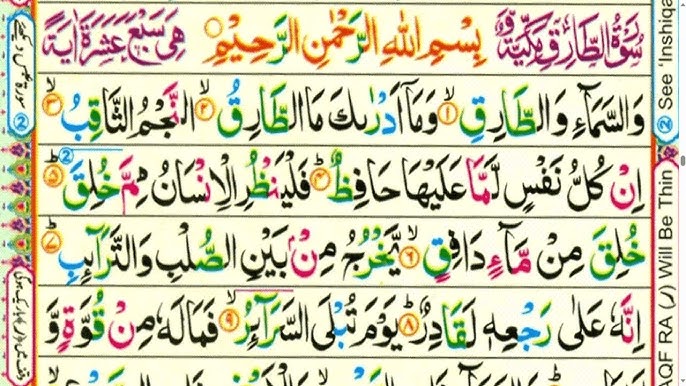 سُوْرَةُ الطَّارِقِ مَكِّيَّةٌ وَّ بِسْمِ اللهِ الرَّحْمٰنِ الرَّحِيْمِ هِىَ سَبْعَ عَشَرَةَ اٰيَةً
وَالسَّمَآءِ وَالطَّارِقِ ۙ﴿۱﴾ وَمَاۤ اَدْرٰىكَ مَا الطَّارِقُ ۙ﴿۲﴾ النَّجْمُ الثَّاقِبُ ۙ﴿۳﴾
اِنْ كُلُّ نَفْسٍ لَّمَّا عَلَيْهَا حَافِظٌ ؕ﴿۴﴾ فَلْيَنْظُرِ الْاِنْسَانُ مِمَّ خُلِقَ ؕ﴿۵﴾
خُلِقَ مِنْ مَّآءٍ دَافِقٍ ۙ﴿۶﴾ يَّخْرُجُ مِنْۢ بَيْنِ الصُّلْبِ وَالتَّرَآئِبِ ؕ﴿۷﴾
اِنَّهٗ عَلٰى رَجْعِهٖ لَقَادِرٌ ؕ﴿۸﴾ يَوْمَ تُبْلَى السَّرَآئِرُ ۙ﴿۹﴾ فَمَالَهٗ مِنْ قُوَّةٍ وَّ
② See 'Inshiqa
AQF RA (ر) Will Be Thin